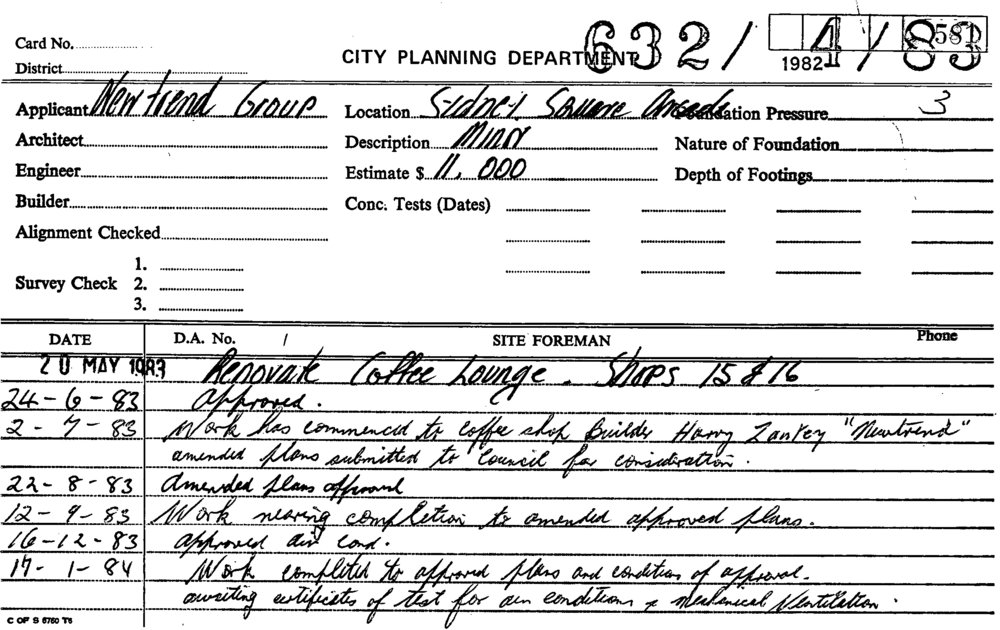 Card No.
District
CITY PLANNING DEPARTMENT 632/4/83
1982 581
Applicant New trend Group Location Sydney Square Arcade Foundation Pressure 3
Architect Description Minr Nature of Foundation
Engineer Estimate $ 11,000 Depth of Footings
Builder Conc. Tests (Dates)
Alignment Checked
1.
Survey Check 2.
3.
DATE D.A. No. / SITE FOREMAN Phone
20 MAY 1983 Renovate Coffee Lounge. Shops 15 & 16
24-6-83 Approved.
2-7-83 Work has commenced to coffee shop Builder Harry "Newtrend"
amended plans submitted to Council for consideration.
22-8-83 Amended plans approved
12-9-83 Work nearing completion to amended approved plans.
16-12-83 Approved air cond.
17-1-84 Work completed to approved plans and condition of approval.
awaiting certificates of test for air conditions & Mechanical Ventilation.
C OF S 6760 T6